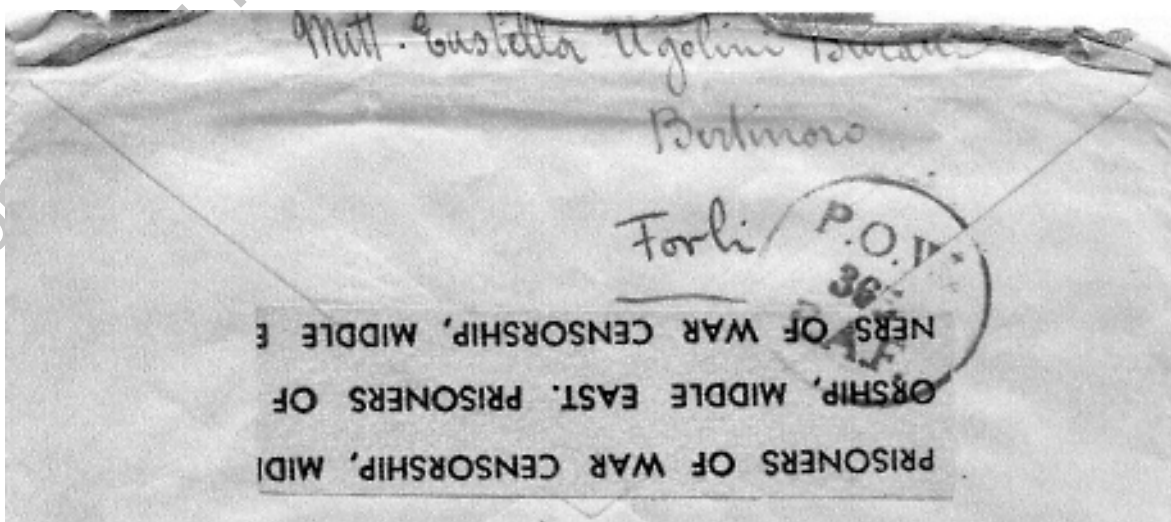 Mitt. Eustella Ugolini
Bertinoro
Forlì
P.O.W.
36
NERS OF WAR CENSORSHIP, MIDDLE E
ORSHIP, MIDDLE EAST. PRISONERS OF
PRISONERS OF WAR CENSORSHIP, MIDI